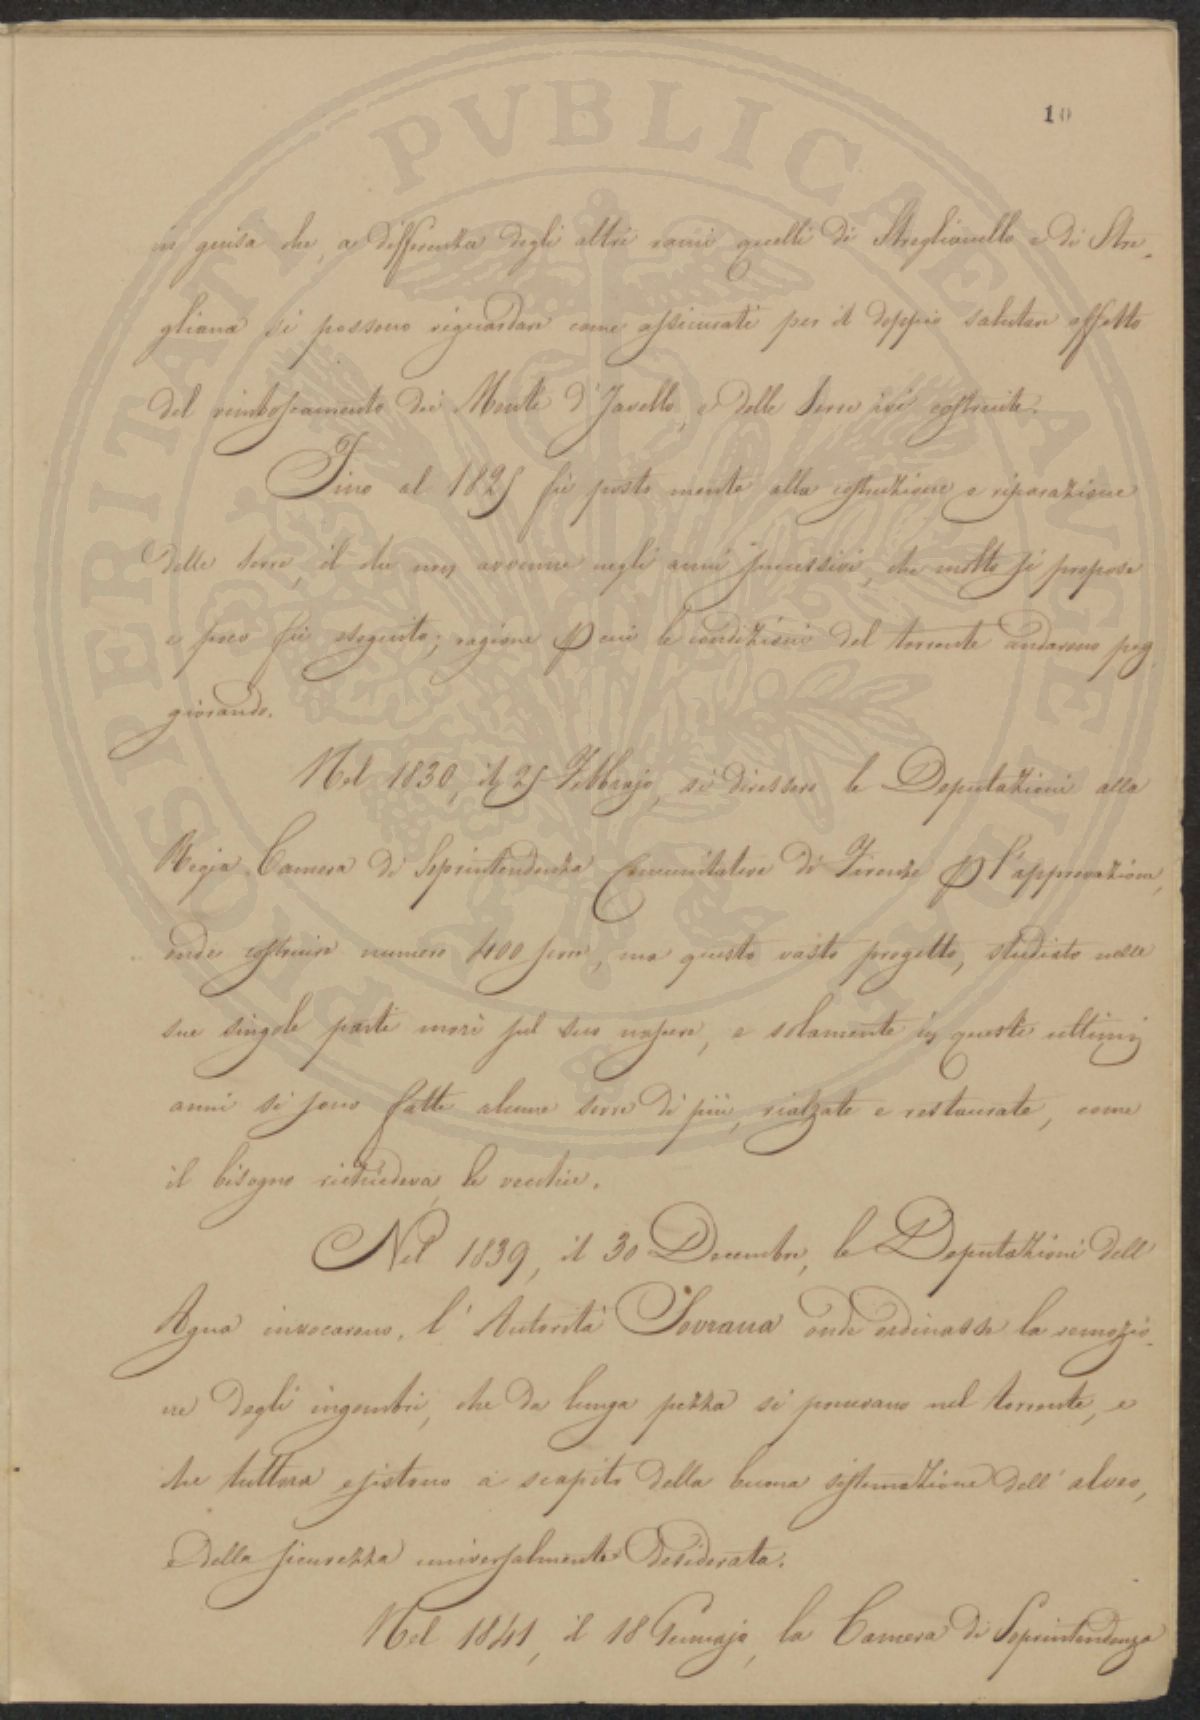 10
in guisa che, a differenza degli altri rami quelli di Streglianello e di Stre-
gliana si possono riguardare come assicurati per il doppio salutare effetto
del rimboscamento dei Monti d'Javello, e delle Serre ivi costruite.
Fino al 1825 fù posto mente alla costruzione e riparazione
delle serre, il che non avvenne negli anni successivi, che molto si propose
e poco fù eseguito; ragione p cui le condizioni del torrente andarono peg-
giorando.
Nel 1830, il 25 Febbrajo, si diressero le Deputazioni alla
Regia Camera di Soprintendenza Comunitativa di Firenze p l'approvazione,
onde costruire numero 400 serre, ma questo vasto progetto, studiato nelle
sue singole parti morì sul suo nascere, e solamente in questi ultimi
anni si sono fatte alcune serre di più, rialzate e restaurate, come
il bisogno richiedeva, le vecchie.
Nel 1839, il 30 Decembre, le Deputazioni dell'
Agna invocarono l'Autorità Sovrana onde ordinasse la remozio-
ne degli ingombri, che da lunga pezza si ponevano nel torrente, e
che tuttora esistono a scapito della buona sistemazione dell'alveo,
e della sicurezza universalmente desiderata.
Nel 1841, il 18 Gennajo, la Camera di Soprintendenza
PROSPERITATI PVBLICAE AVGENDAE